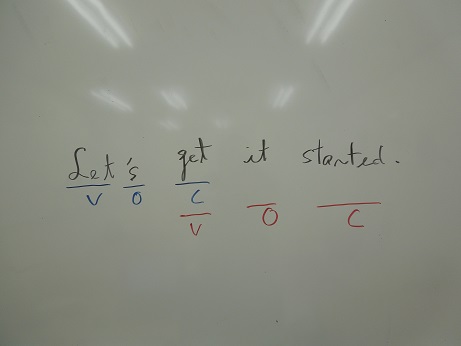 Let's get it started.
V O C
V O C